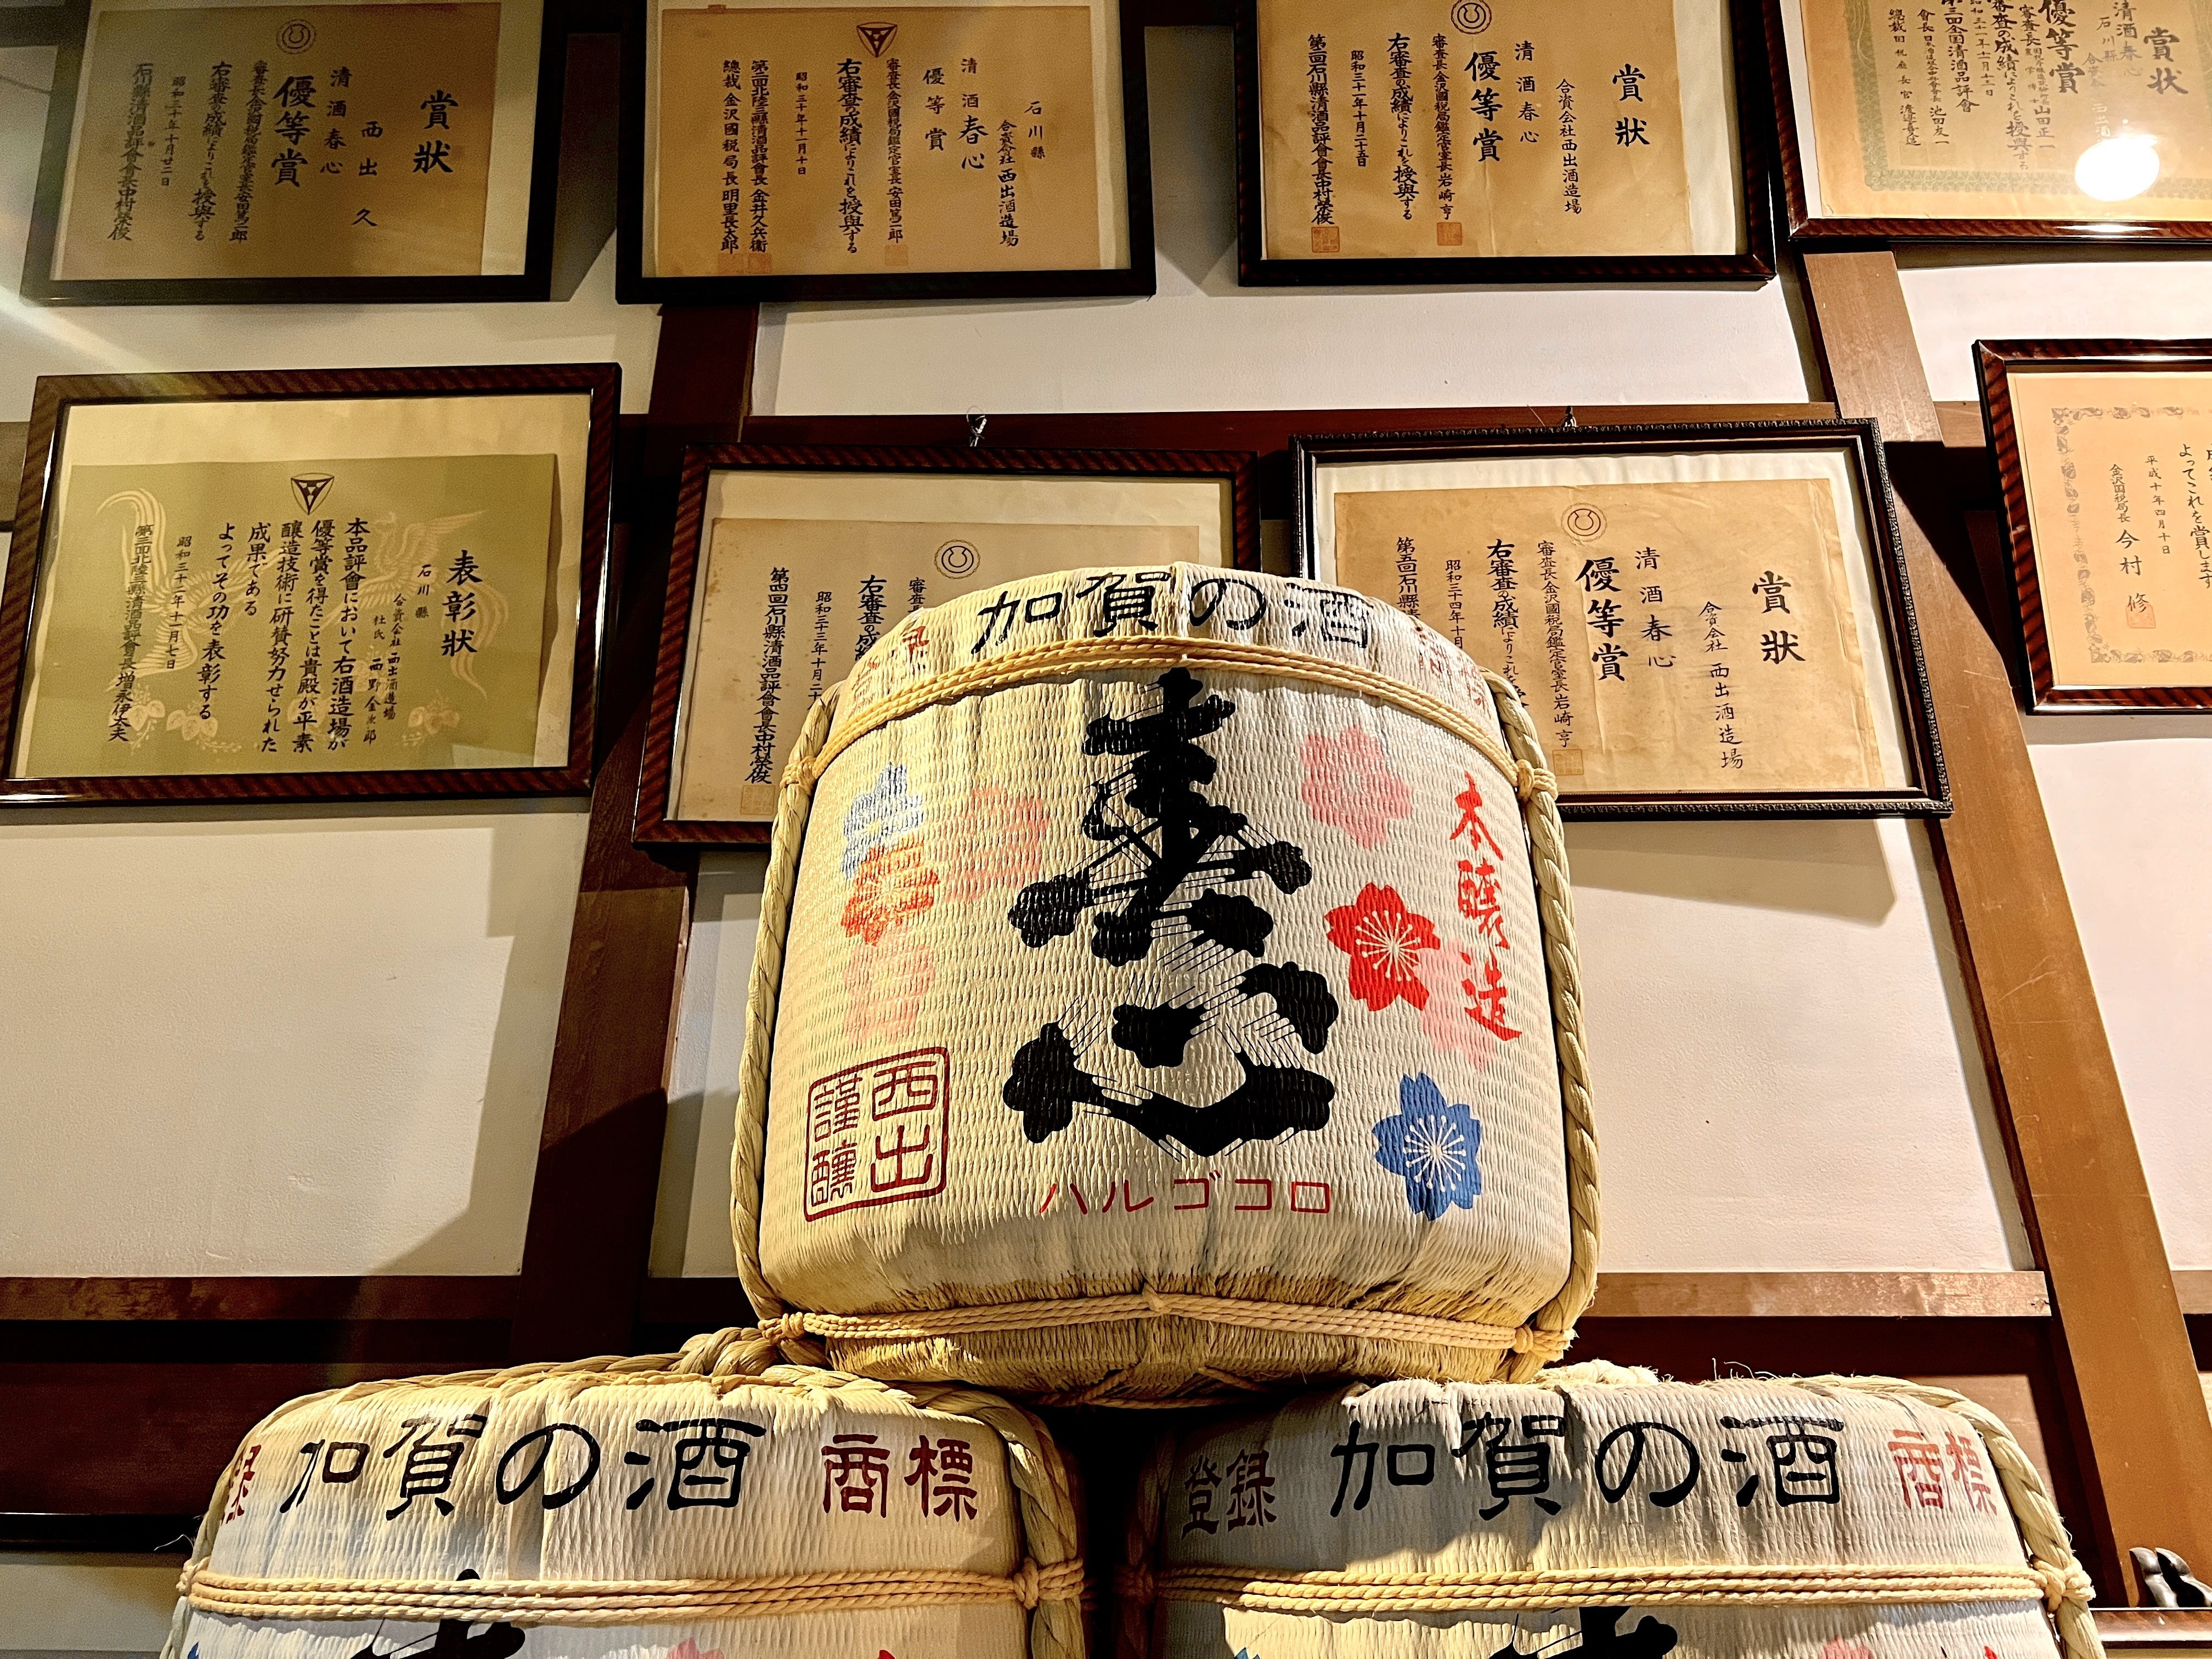 賞狀
西出久
清酒春心
優等賞
右審査の成績によりこれを授與する
昭和三十年十月廿二日
石川縣清酒品評會會長中村榮俊
石川縣
合資会社西出酒造場
清酒春心
優等賞
審査長金沢國税局鑑定官室長安田篤二郎
右審査の成績によりこれを授與する
昭和三十年十一月十日
第二回北陸三縣清酒品評會會長金井久兵衛
總裁金沢國税局長明里長太郎
賞狀
合資会社西出酒造場
清酒春心
優等賞
審査長金沢國税局鑑定官室長岩崎亨
右審査の成績によりこれを授與する
第二回石川縣清酒品評會會長中村榮俊
賞狀
石川縣
清酒春心
優等賞
表彰状
石川縣
合資会社西出酒造場
杜氏
本品評會において右酒造場が
優等賞を得たことは貴殿が平素
醸造技術に研賛努力せられた
成果である
よってその功を表彰する
昭和三十一年十一月七日
第三回北陸三縣清酒品評會會長増永伊太夫
昭和三十三年十月二
第四回石川縣清酒品評會會長中村榮俊
賞狀
合資会社西出酒造場
清酒春心
優等賞
審査長金沢國税局鑑定官室長岩崎亨
右審査の成績によりこれ
昭和三十四年十月
第五回石川縣
よってこれを賞します
平成十年四月十日
金沢国税局長今村修
加賀の酒
春心
本醸造
西出謹醸
ハルゴコロ
録 加賀の酒 商標
登録 加賀の酒 商標